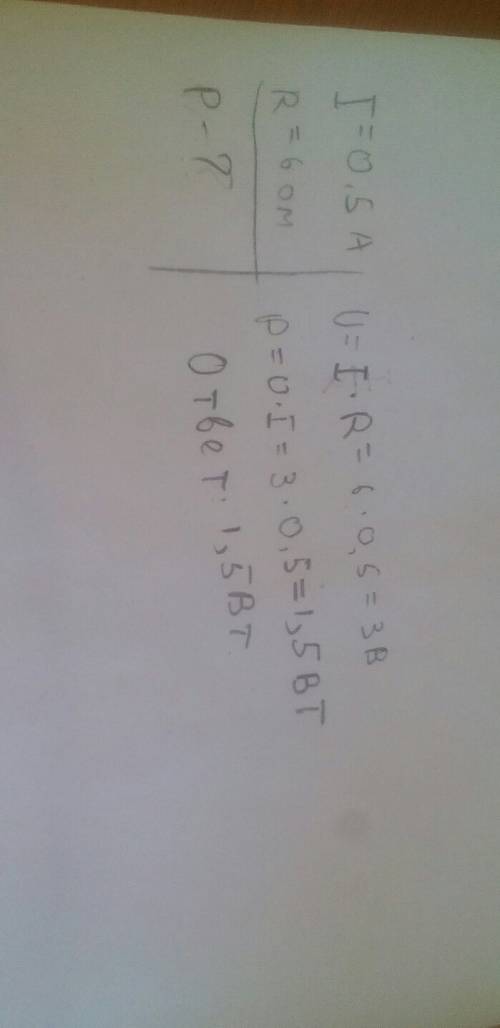 I = 0,5 А
R = 6 ом
P - ?
U = I · R = 6 · 0,5 = 3В
P = U · I = 3 · 0,5 = 1,5 ВТ
Ответ: 1,5 ВТ